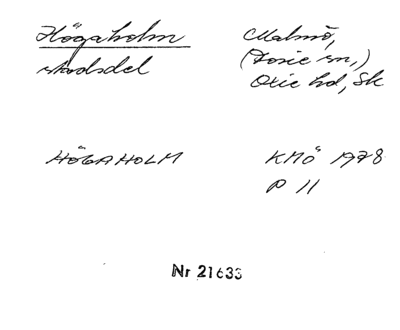 Högaholm
stadsdel
Malmö,
(Fosie sn,)
Oxie hd, Sk
HÖGAHOLM
KMÖ 1978
P 11
Nr 21633